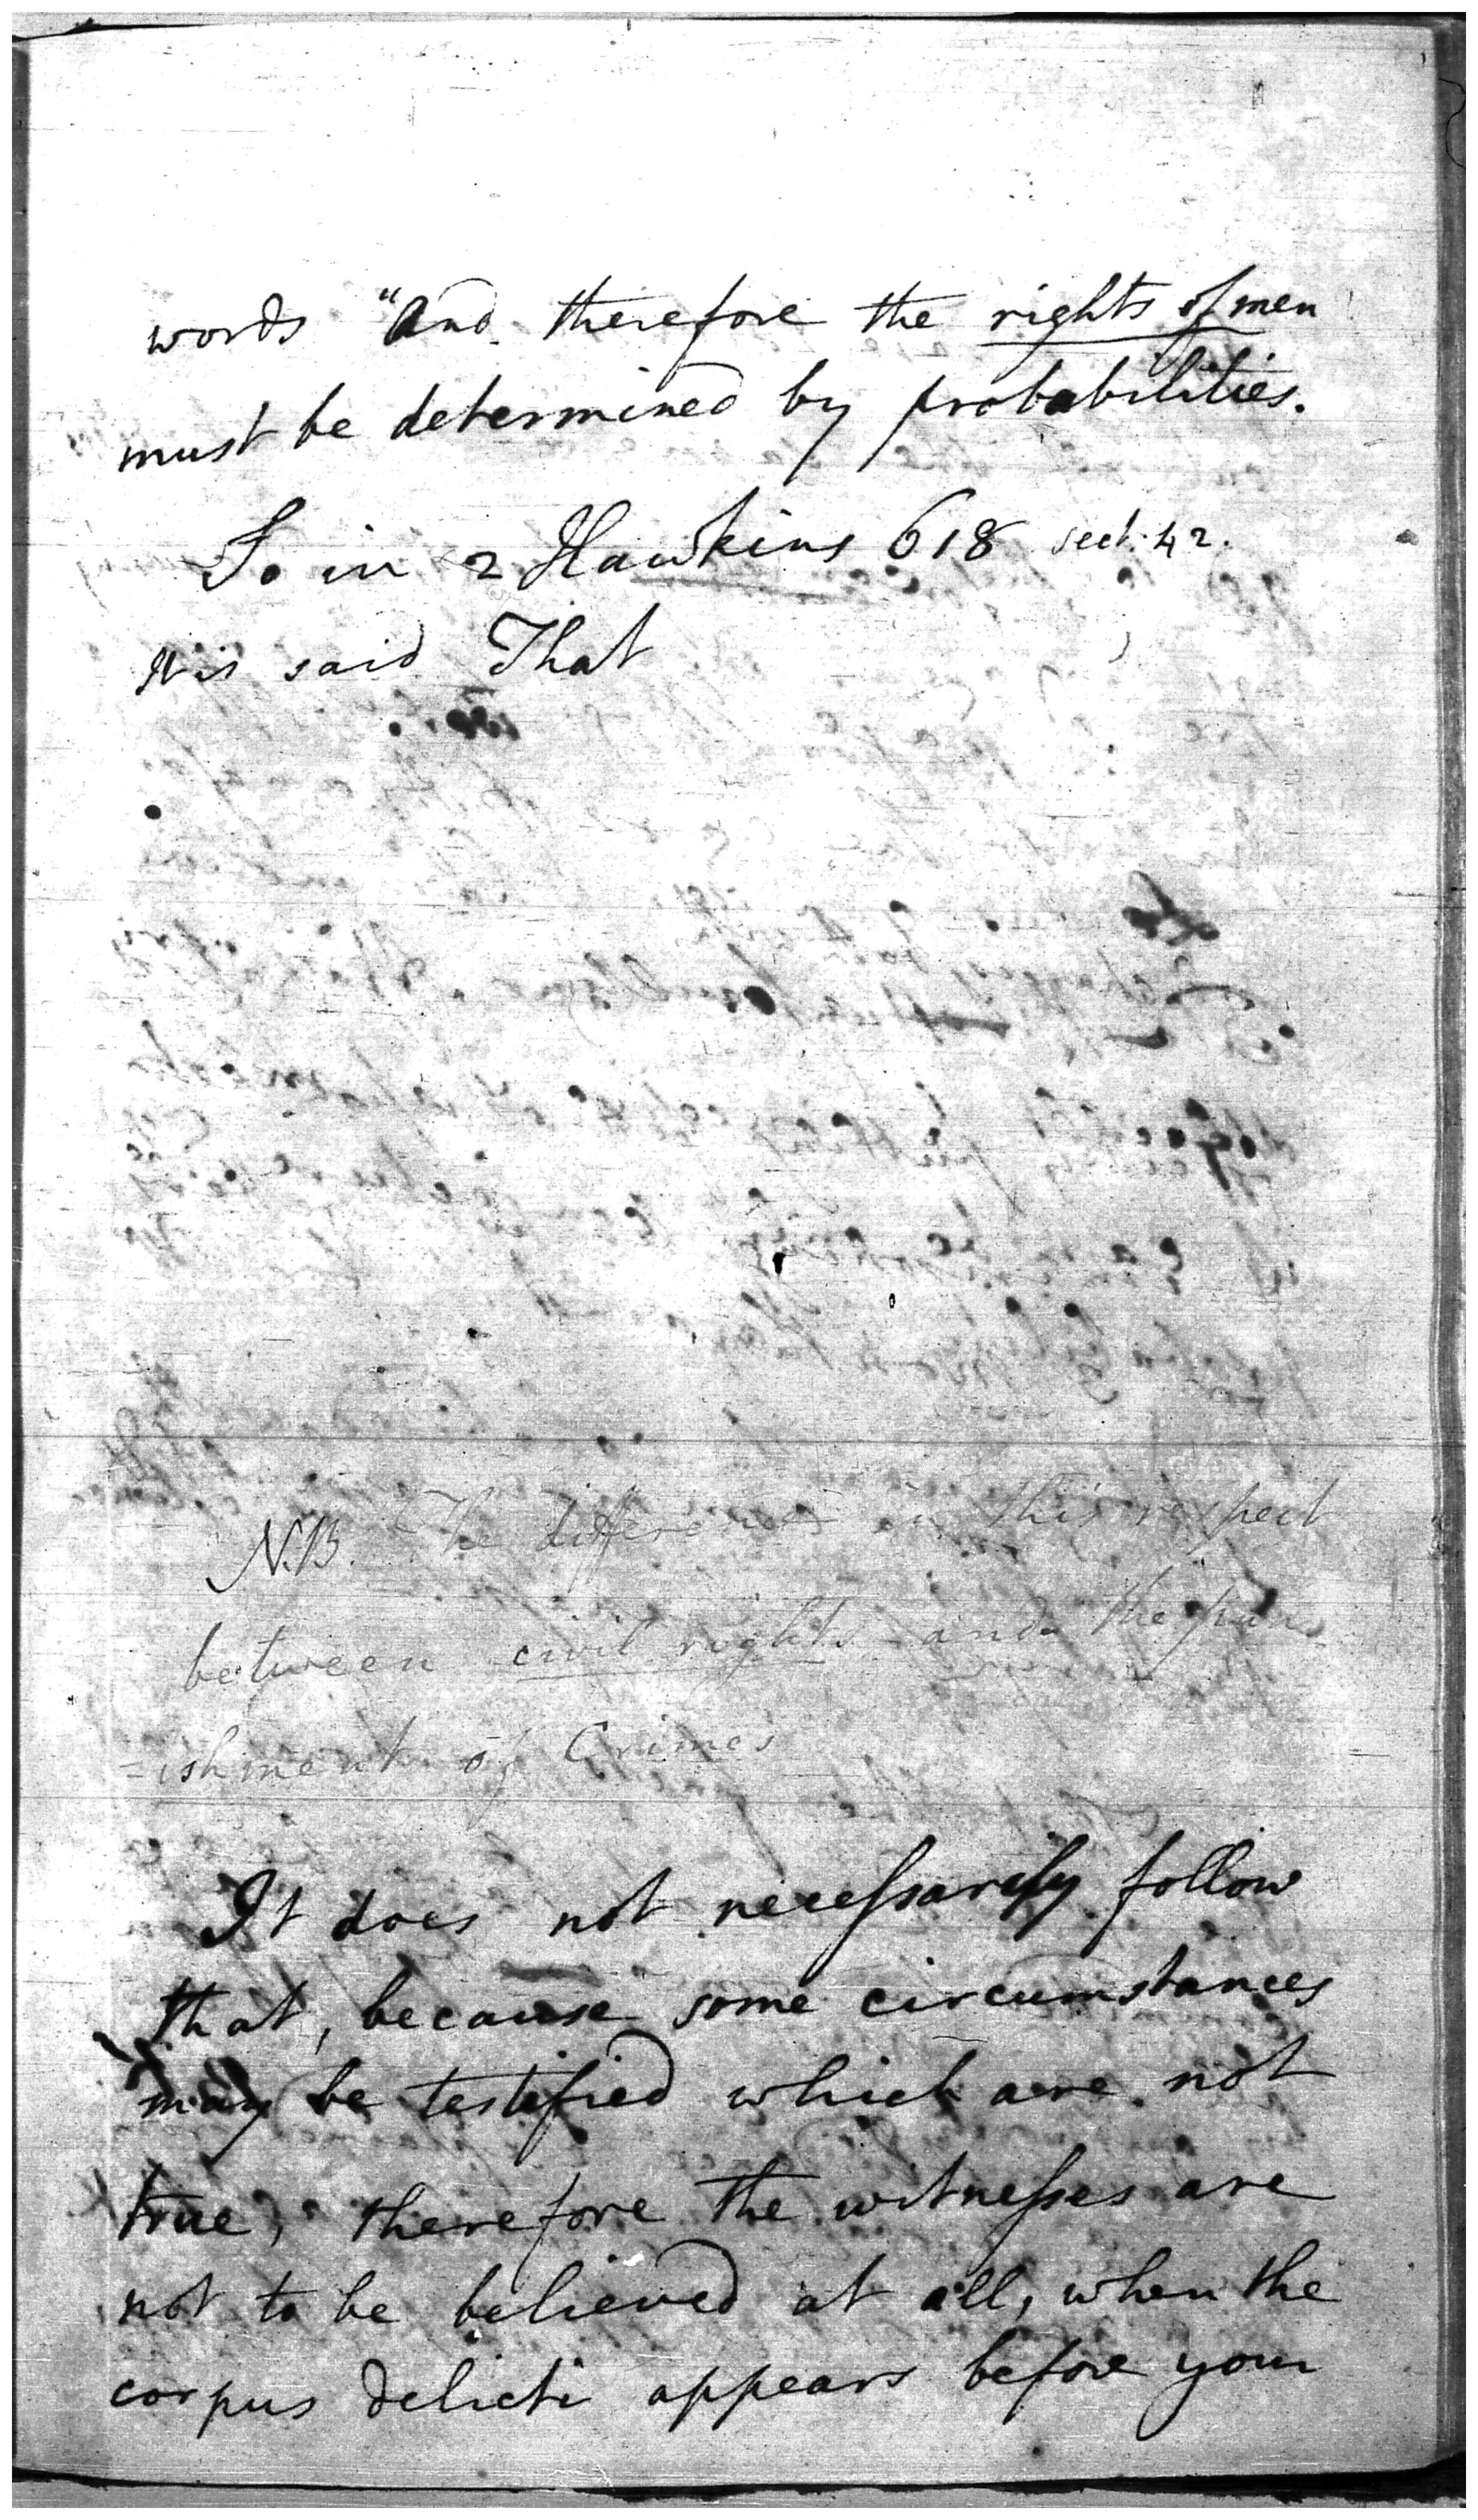 words "And therefore the rights of men
must be determined by probabilities.
So in 2 Hawkins 618 sect. 42.
It is said That
N.B. The difference in this respect
between civil rights and the pun
=ishment of Crimes
It does not necessarily follow
that, because some circumstances
may be testified which are not
true, therefore the witnesses are
not to be believed at all, when the
corpus delicti appears before your